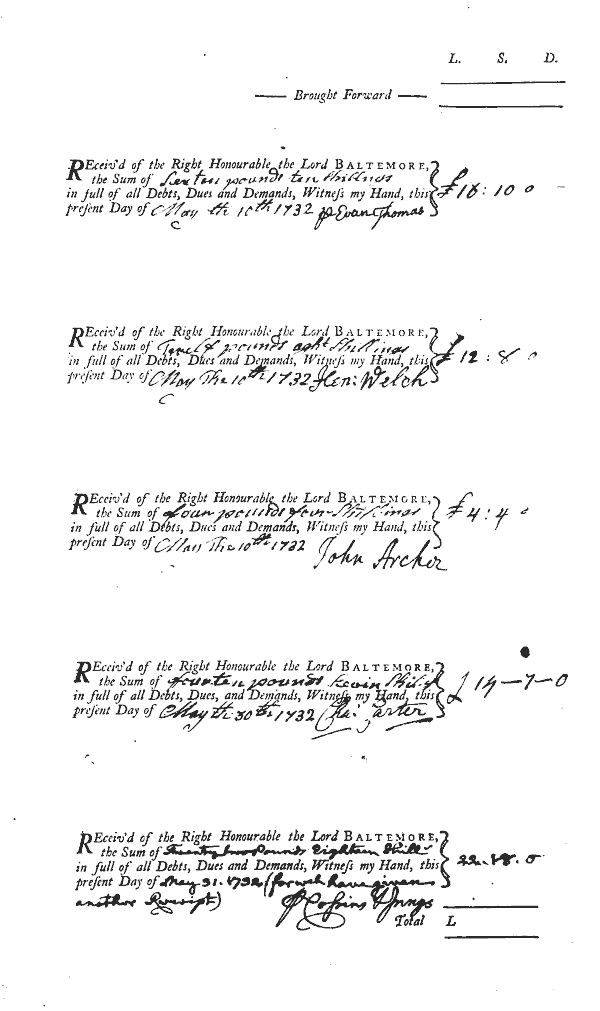 L. S. D.
Brought Forward
REceiv'd of the Right Honourable the Lord BALTEMORE,
the Sum of Sixten pounds ten shillings
in full of all Debts, Dues and Demands, Witneſs my Hand, this £16:10 0
preſent Day of May the 10th 1732 p Evan Thomas
REceiv'd of the Right Honourable the Lord BALTEMORE,
the Sum of pounds Shillings
in full of all Debts, Dues and Demands, Witneſs my Hand, this £12:8 0
preſent Day of May The 10th 1732 Hen: Welch
REceiv'd of the Right Honourable the Lord BALTEMORE,
the Sum of four pounds four Shillings £4:4 0
in full of all Debts, Dues and Demands, Witneſs my Hand, this
preſent Day of May The 10th 1732
John Archer
REceiv'd of the Right Honourable the Lord BALTEMORE,
the Sum of fourten pounds
in full of all Debts, Dues, and Demands, Witneſs my Hand, this £ 14-7-0
preſent Day of May th 30th 1732 Carter
REceiv'd of the Right Honourable the Lord BALTEMORE,
the Sum of Twenty two Pounds Eighteen Shills
in full of all Debts, Dues and Demands, Witneſs my Hand, this 22.18.0
preſent Day of May 31. 1732 (for wch have given
another Receipt)
Total L